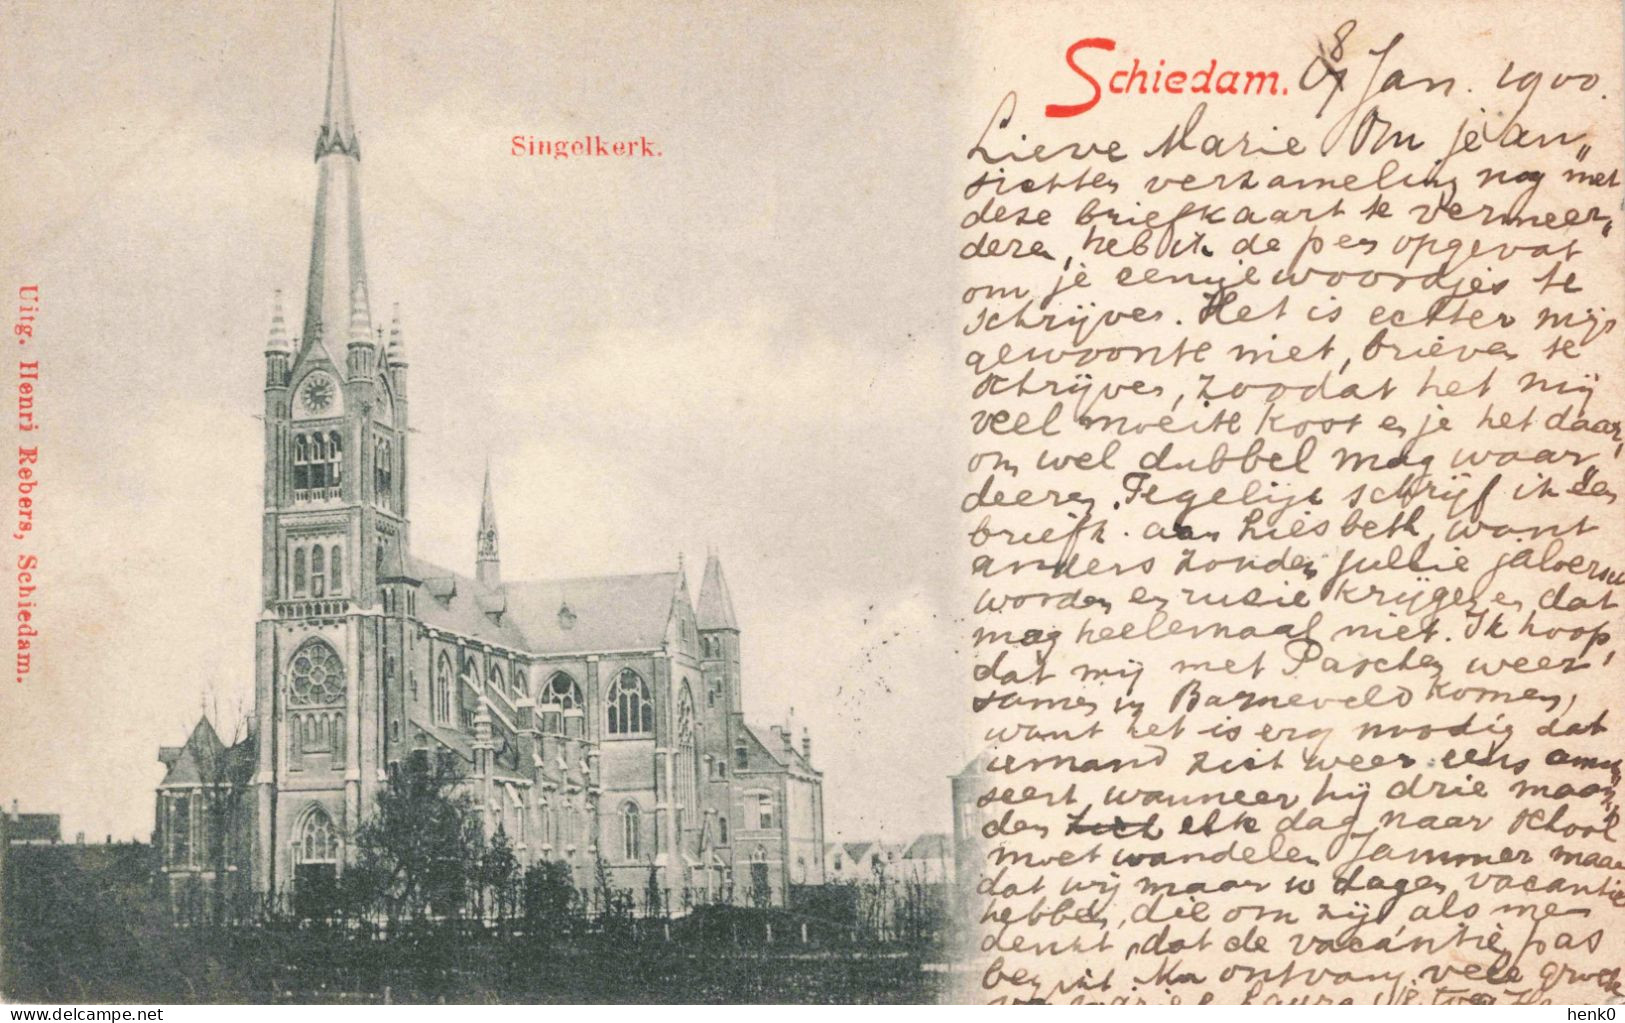 Singelkerk.
Uitg. Henri Rebers, Schiedam.
Schiedam. 8 Jan. 1900.
Lieve Marie. Om je an„
sichten verzameling nog met
deze briefkaart te vermeer„
deren, heb ik de pen opgevat
om je eenige woordjes te
schrijven. Het is echter mijn
gewoonte niet, brieven te
schrijven, zoodat het mij
veel moeite kost en je het daar,
om wel dubbel mag waar„
deeren. Tegelijk schrijf ik een
briefk. aan Liesbeth, want
anders zouden jullie jaloersch
worden en ruzie krijgen en dat
mag heelemaal niet. Ik hoop,
dat wij met Paschen weer
samen in Barneveld komen,
want het is erg noodig dat
iemand zich weer eens amu„
seert, wanneer hij drie maan„
den elk dag naar school
moet wandelen. Jammer maar
dat wij maar 10 dagen vacantie
hebben, die om zijn als men
denkt, dat de vacantie pas
begint. Nu ontvang vele groete
henk0